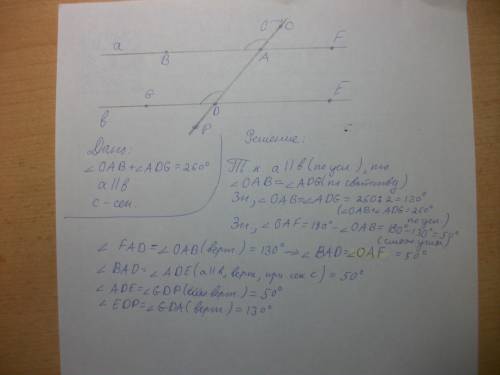 C O
a B A F
G D E
в P
Дано: Решение:
∠OAB+∠ADG=260°
a∥в
c-сек.
Т.к a∥в (по усл), то
∠OAB=∠ADG (по свойству)
Зн., ∠OAB=∠ADG=260:2=130°
(∠OAB+∠ADG=260° по усл.)
Зн., ∠OAF=180°-∠OAB=180°-130°=50°
(смеж. углы)
∠FAD=∠OAB (верт.)=130° → ∠BAD=∠OAF=50°
∠BAD=∠ADE (a∥в, верт, при сек c)=50°
∠ADE=∠GDP (верт.)=50°
∠EDP=∠GDA (верт.)=130°